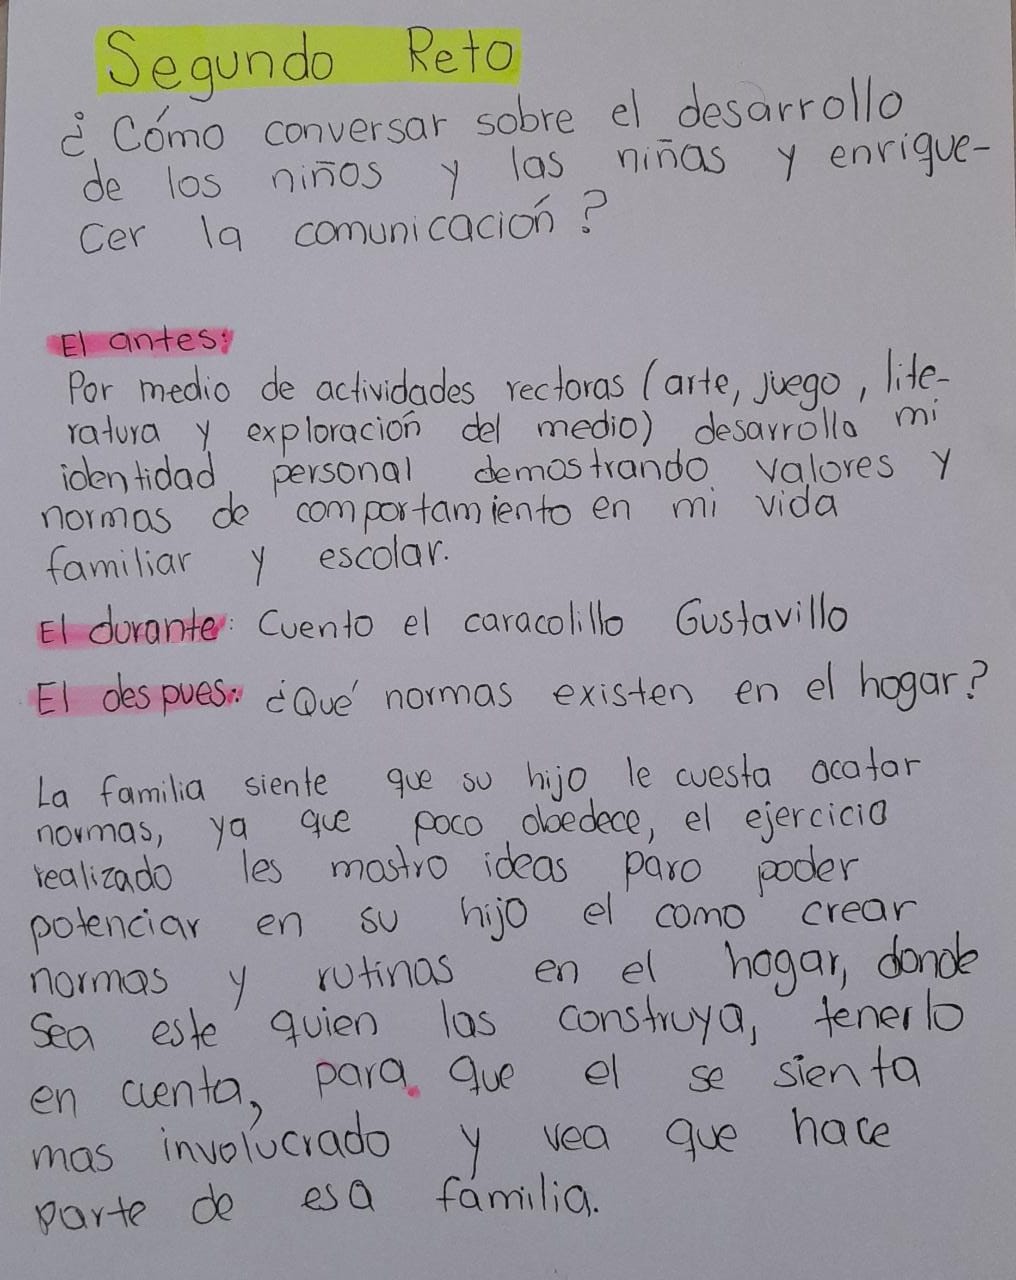 Segundo Reto
¿Cómo conversar sobre el desarrollo
de los niños y las niñas y enrique-
cer la comunicación?
El antes:
Por medio de actividades rectoras (arte, juego, lite-
ratura y exploración del medio) desarrollo mi
identidad personal demostrando valores y
normas de comportamiento en mi vida
familiar y escolar.
El durante: Cuento el caracolillo Gustavillo
El despues: ¿Qué normas existen en el hogar?
La familia siente que su hijo le cuesta acatar
normas, ya que poco obedece, el ejercicio
realizado les mostro ideas para poder
potenciar en su hijo el como crear
normas y rutinas en el hogar, donde
sea este quien las construya, tenerlo
en cuenta, para que el se sienta
mas involucrado y vea que hace
parte de esa familia.